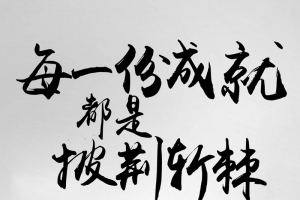 每一份成就
都是
披荆斩棘